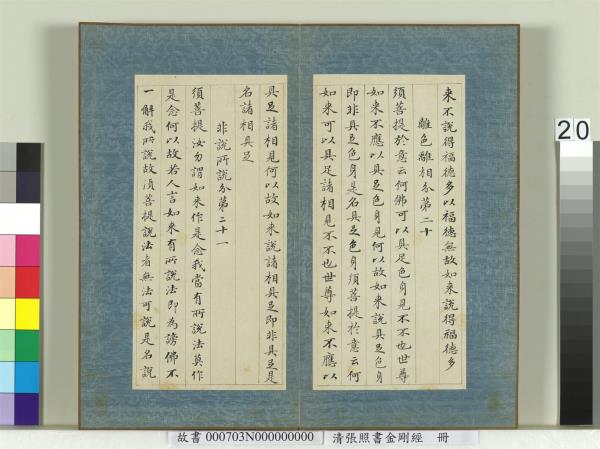 來不說得福德多以福德無故如來說得福德多
離色離相分第二十
須菩提於意云何佛可以具足色身見不不也世尊
如來不應以具足色身見何以故如來說具足色身
即非具足色身是名具足色身須菩提於意云何
如來可以具足諸相見不不也世尊如來不應以
具足諸相見何以故如來說諸相具足即非具足是
名諸相具足
非說所說分第二十一
須菩提汝勿謂如來作是念我當有所說法莫作
是念何以故若人言如來有所說法即為謗佛不
能解我所說故須菩提說法者無法可說是名說
20
故書 000703N000000000 清張照書金剛經 冊